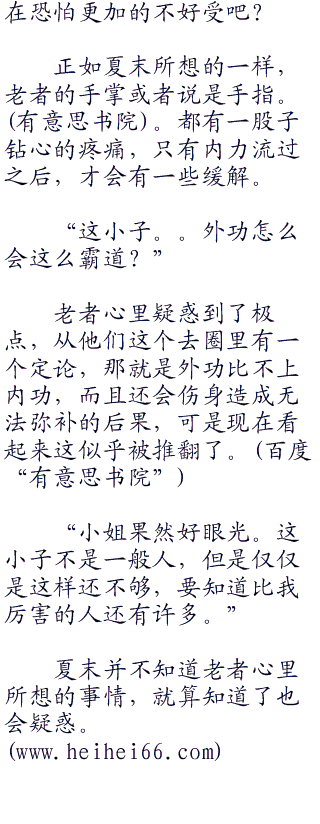 在恐怕更加的不好受吧？
正如夏末所想的一样，
老者的手掌或者说是手指。
(有意思书院)。都有一股子
钻心的疼痛，只有内力流过
之后，才会有一些缓解。
“这小子。。外功怎么
会这么霸道？”
老者心里疑惑到了极
点，从他们这个去圈里有一
个定论，那就是外功比不上
内功，而且还会伤身造成无
法弥补的后果，可是现在看
起来这似乎被推翻了。(百度
“有意思书院”)
“小姐果然好眼光。这
小子不是一般人，但是仅仅
是这样还不够，要知道比我
厉害的人还有许多。”
夏末并不知道老者心里
所想的事情，就算知道了也
会疑惑。
(www.heihei66.com)